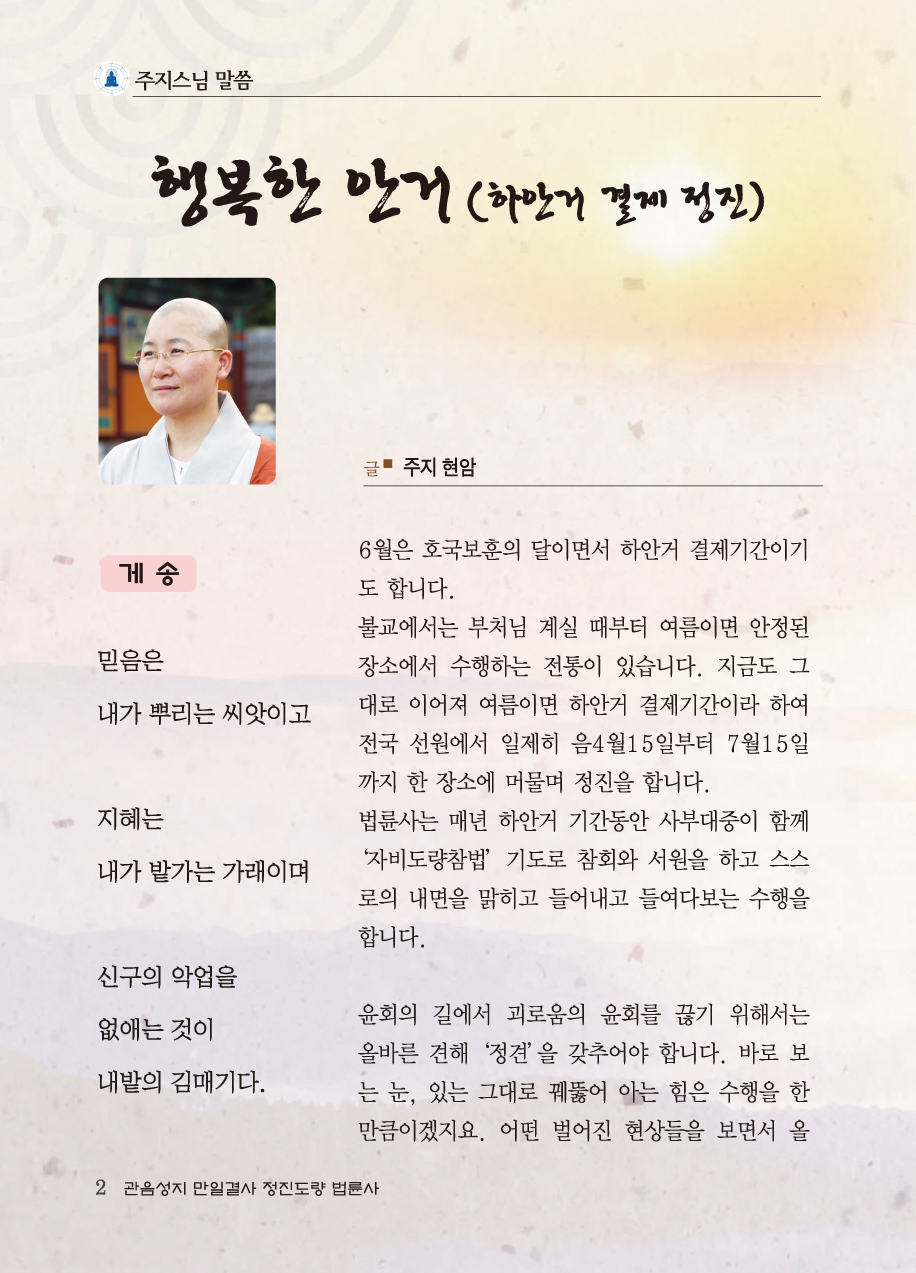 주지스님 말씀
행복한 안거 (하안거 결제 정진)
글■ 주지 현암
게 송
믿음은
내가 뿌리는 씨앗이고
지혜는
내가 밭가는 가래이며
신구의 악업을
없애는 것이
내밭의 김매기다.
6월은 호국보훈의 달이면서 하안거 결제기간이기
도 합니다.
불교에서는 부처님 계실 때부터 여름이면 안정된
장소에서 수행하는 전통이 있습니다. 지금도 그
대로 이어져 여름이면 하안거 결제기간이라 하여
전국 선원에서 일제히 음4월15일부터 7월15일
까지 한 장소에 머물며 정진을 합니다.
법륜사는 매년 하안거 기간동안 사부대중이 함께
‘자비도량참법’ 기도로 참회와 서원을 하고 스스
로의 내면을 맑히고 들어내고 들여다보는 수행을
합니다.
윤회의 길에서 괴로움의 윤회를 끊기 위해서는
올바른 견해 ‘정견’을 갖추어야 합니다. 바로 보
는 눈, 있는 그대로 꿰뚫어 아는 힘은 수행을 한
만큼이겠지요. 어떤 벌어진 현상들을 보면서 올
2 관음성지 만일결사 정진도량 법륜사